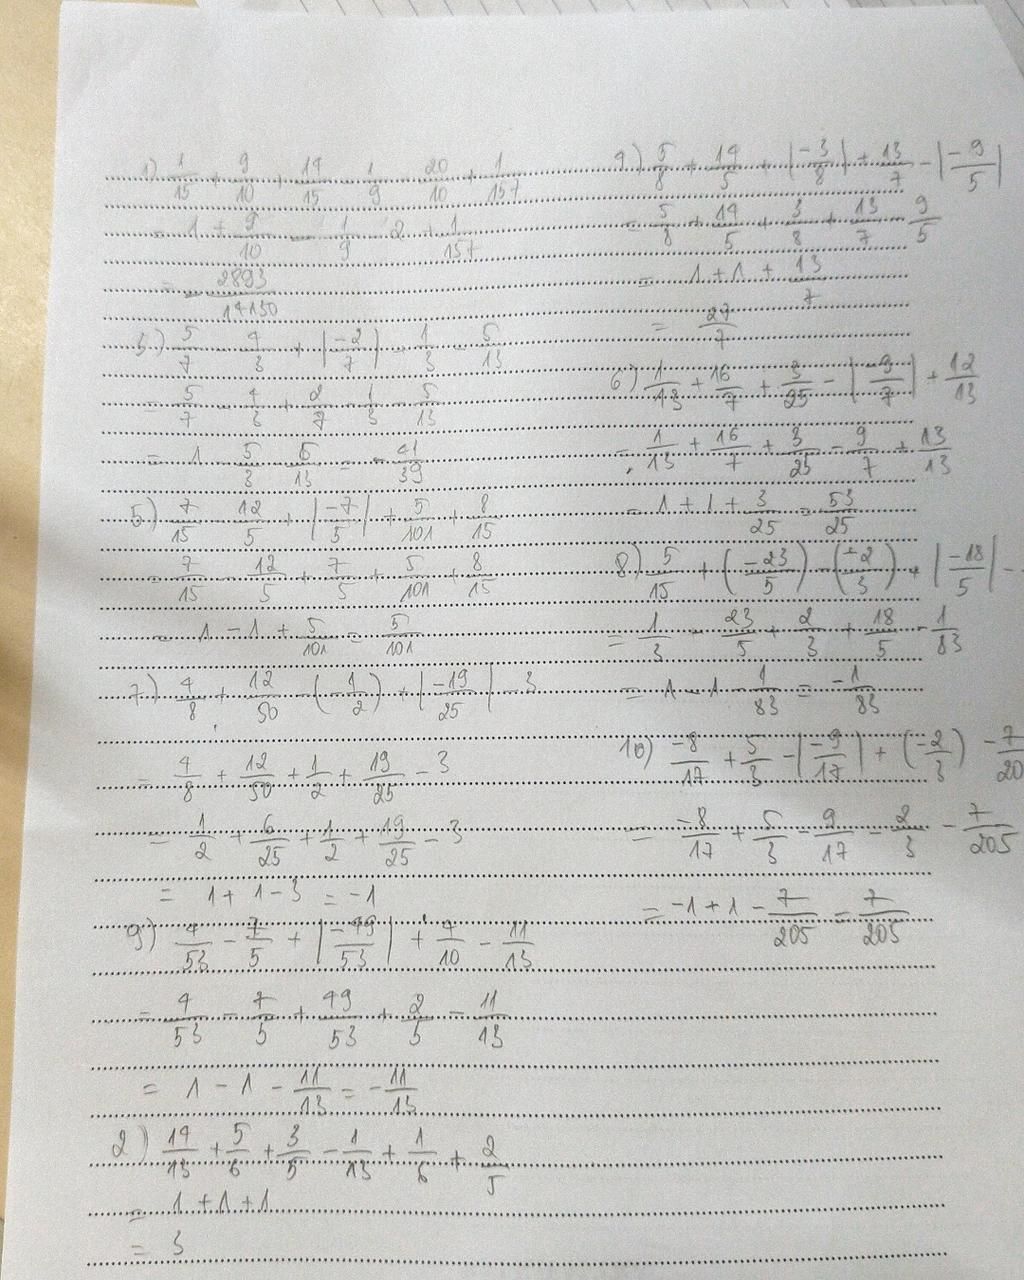 1) 1/15 + 9/10 + 14/15 - 1/9 - 20/10 + 1/157
= 1 + 9/10 - 1/9 - 2 + 1/157
= - 2893/14130
5) 5/7 - 4/3 + |-2/7| - 1/3 - 5/13
= 5/7 - 4/3 + 2/7 - 1/3 - 5/13
= 1 - 5/3 - 5/13 = - 41/39
5) 7/15 - 12/5 + |-7/5| + 5/101 + 8/15
= 7/15 - 12/5 + 7/5 + 5/101 + 8/15
= 1 - 1 + 5/101 = 5/101
7) 4/8 + 12/50 - (-1/2) + |-19/25| - 3
= 4/8 + 12/50 + 1/2 + 19/25 - 3
= 1/2 + 6/25 + 1/2 + 19/25 - 3
= 1 + 1 - 3 = -1
9) 4/53 - 7/5 + |-49/53| + 4/10 - 11/13
= 4/53 - 7/5 + 49/53 + 2/5 - 11/13
= 1 - 1 - 11/13 = - 11/13
2) 14/13 + 5/6 + 3/5 - 1/13 + 1/6 + 2/5
= 1 + 1 + 1
= 3
4) 5/8 + 14/5 + |-3/8| + 13/7 - |-9/5|
= 5/8 + 14/5 + 3/8 + 13/7 - 9/5
= 1 + 1 + 13/7
= 27/7
6) 1/13 + 16/7 + 3/25 - |-9/7| + 12/13
= 1/13 + 16/7 + 3/25 - 9/7 + 13/13
= 1 + 1 + 3/25 = 53/25
8) 5/15 + (-23/5) - (-2/3) + |-18/5| -
= 1/3 - 23/5 + 2/3 + 18/5 - 1/83
= 1 - 1 - 1/83 = -1/83
10) -8/17 + 5/3 - |-9/17| + (-2/3) - 7/20
= -8/17 + 5/3 - 9/17 - 2/3 - 7/205
= -1 + 1 - 7/205 = 7/205